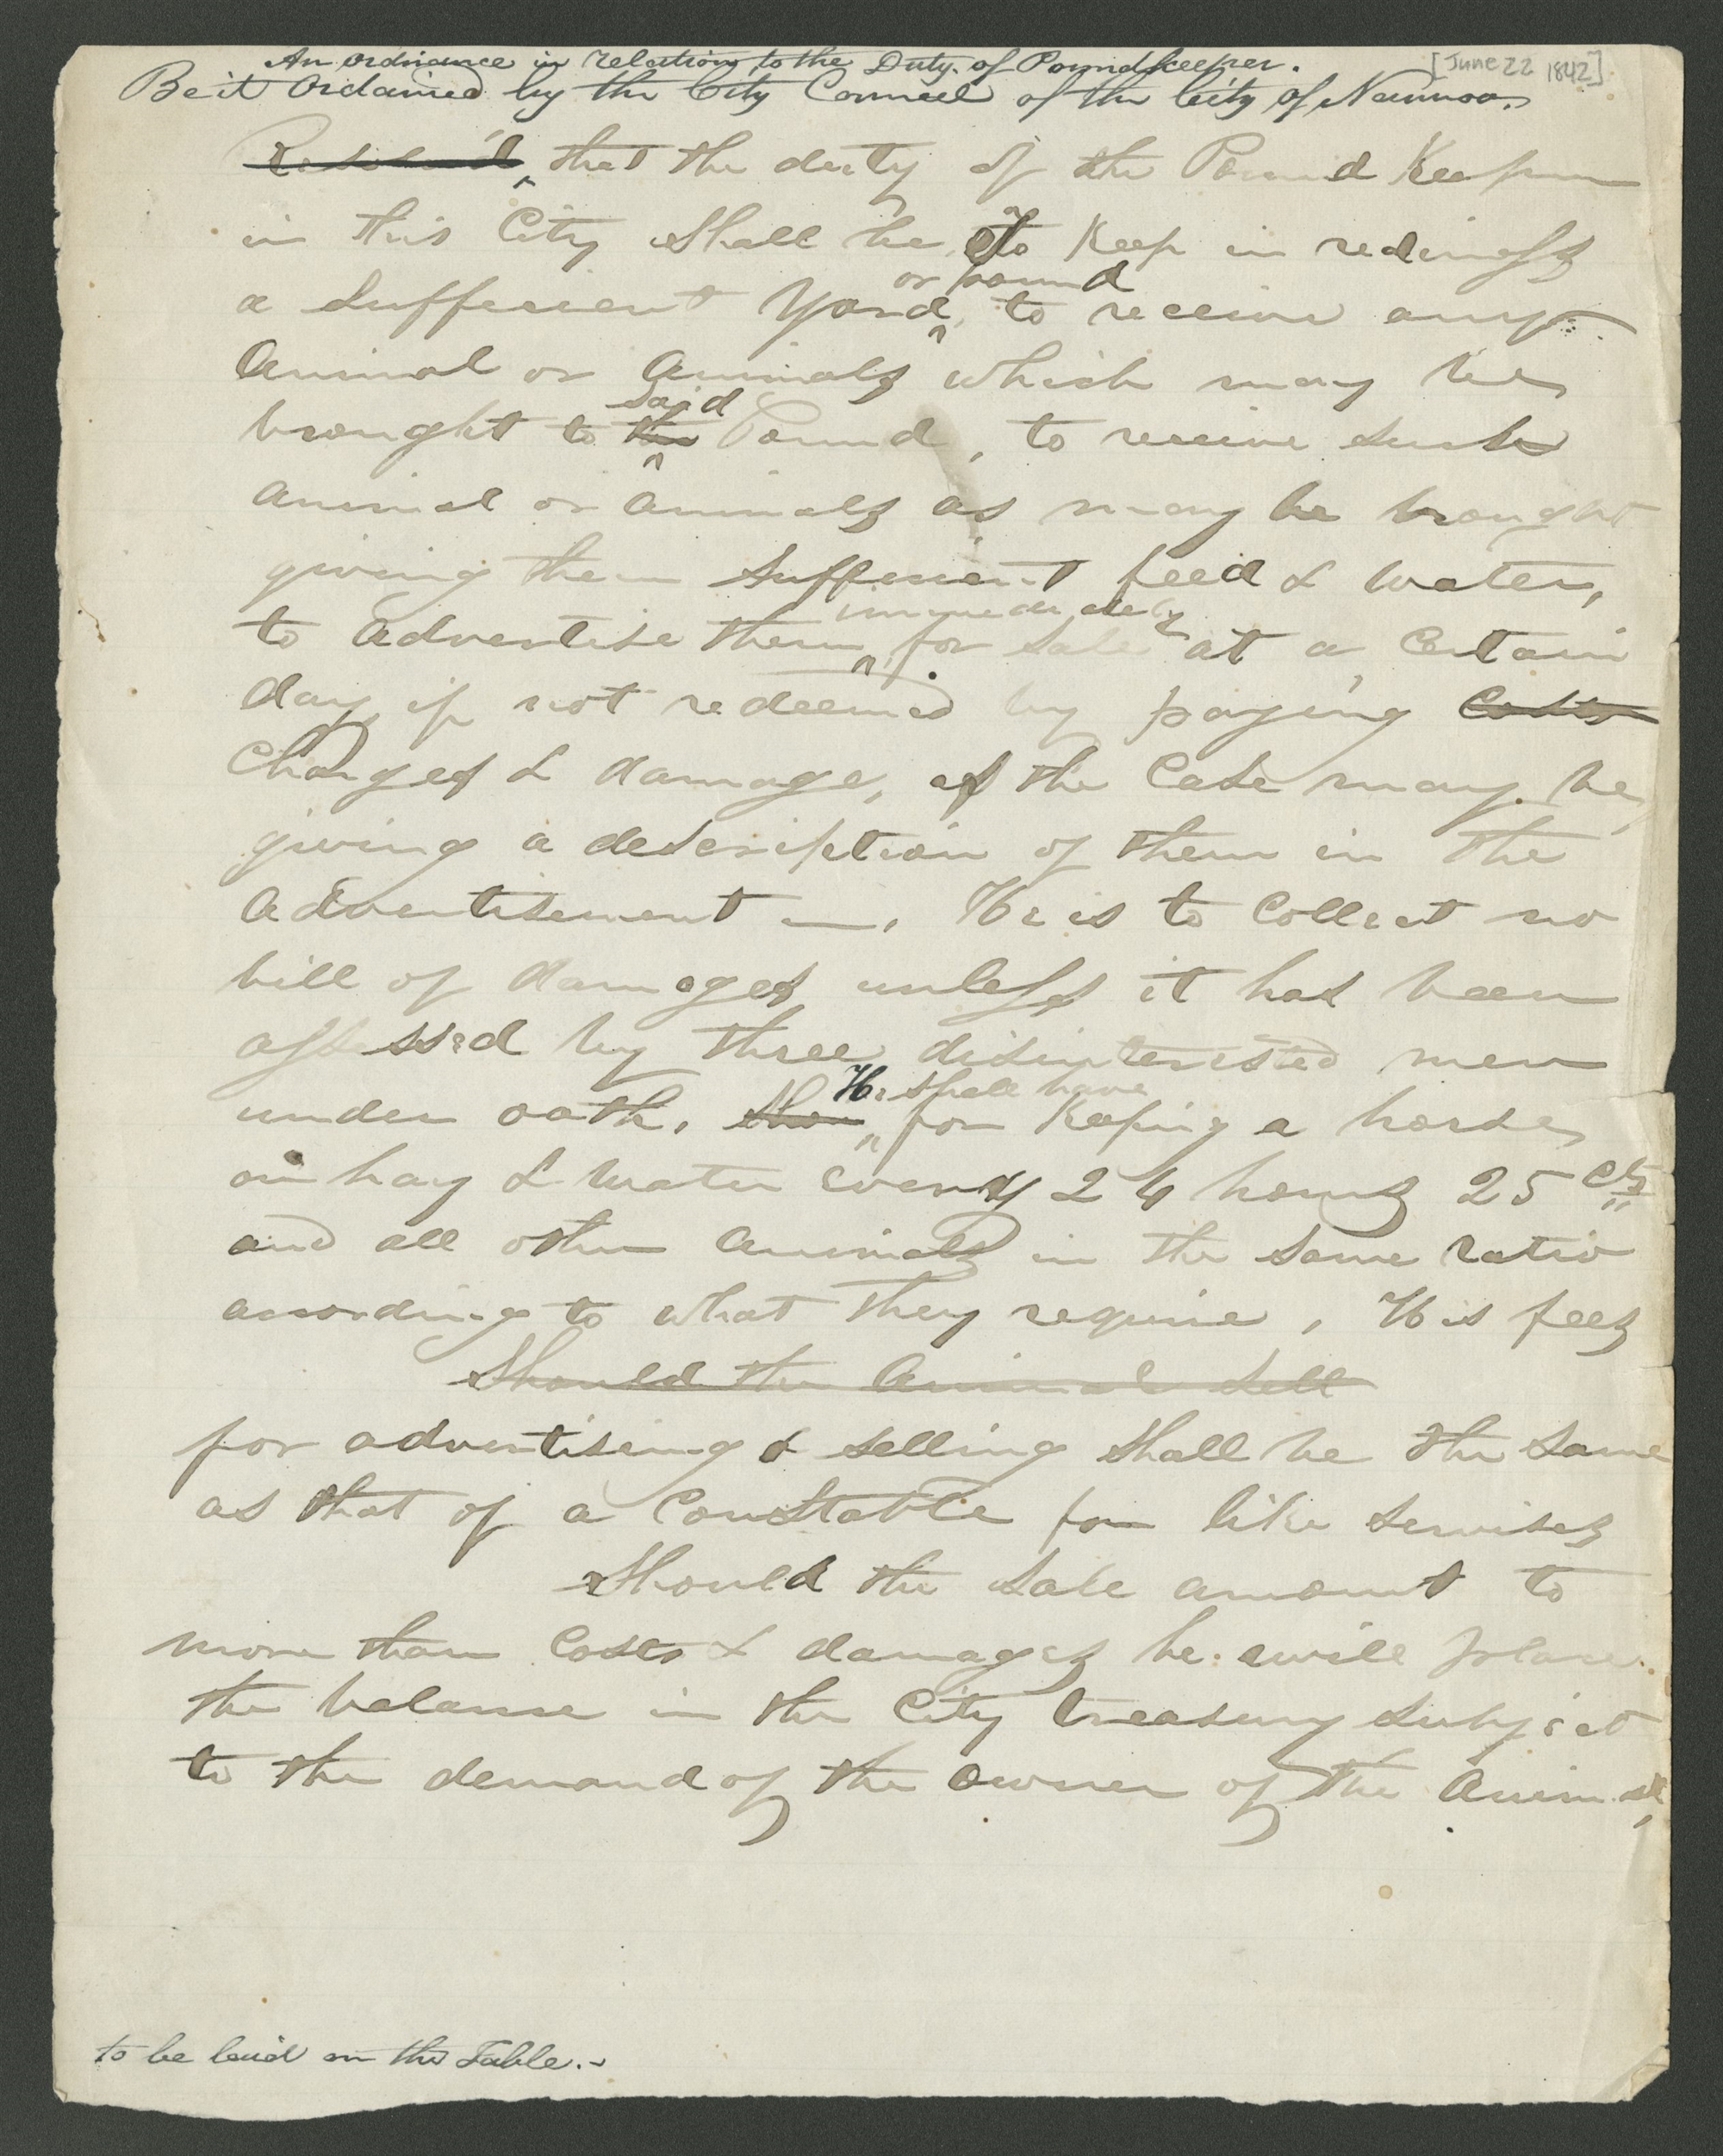 An ordinance in relation to the Duty of Pound keeper.
[June 22 1842]
Be it Ordained by the City Council of the City of Nauvoo.
Resolved, that the duty of the Pound Keeper
in this City Shall be, to Keep in rediness
or pound
a Sufficient Yard, to receive any
Animal or Animals which may be
said
brought to the Pound, to receive such
animal or animals as may be brought
giving them sufficient feed & water,
immediately
to advertise them for Sale at a certain
day if not redeemed by paying Costs
Charges & damage, as the Case may be,
giving a description of them in the
Advertisement —. He is to Collect no
bill of damages unless it has been
assessed by three disinterested men
He shall have
under oath, for Keeping a horse,
on hay & water every 24 hours 25 cts
and all other animals in the same ratio
according to what they require, His fees
Should the Animal Sell
for advertiseing & selling Shall be the same
as that of a Constable for like servises
Should the Sale amount to
more than Costs & damages he will place
the balance in the City treasury subject
to the demand of the owner of the Animal,
to be laid on the Table.-